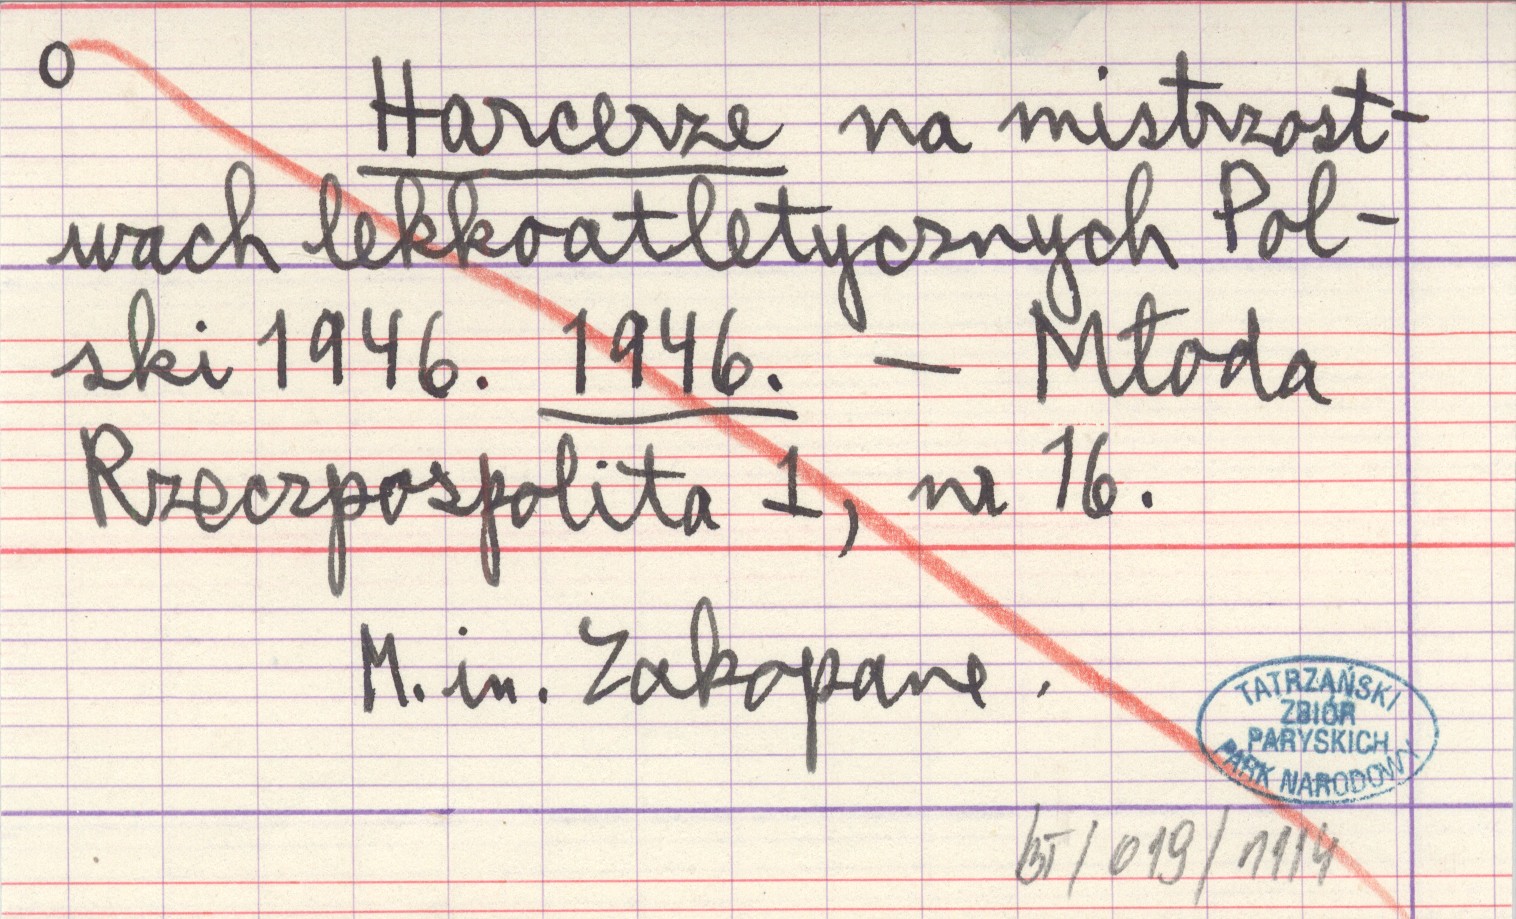 O
Harcerze na mistrzost-
wach lekkoatletycznych Pol-
ski 1946. 1946. — Młoda
Rzeczpospolita 1, nr 16.
M. in. Zakopane.
TATRZAŃSKI
ZBIÓR
PARYSKICH
PARK NARODOWY
BT/019/1114